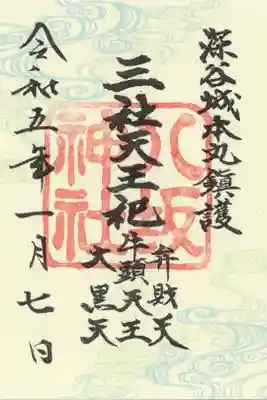 深谷城本丸鎮護
三社天王祀
弁財天
牛頭天王
大黒天
令和五年一月七日
八坂神社